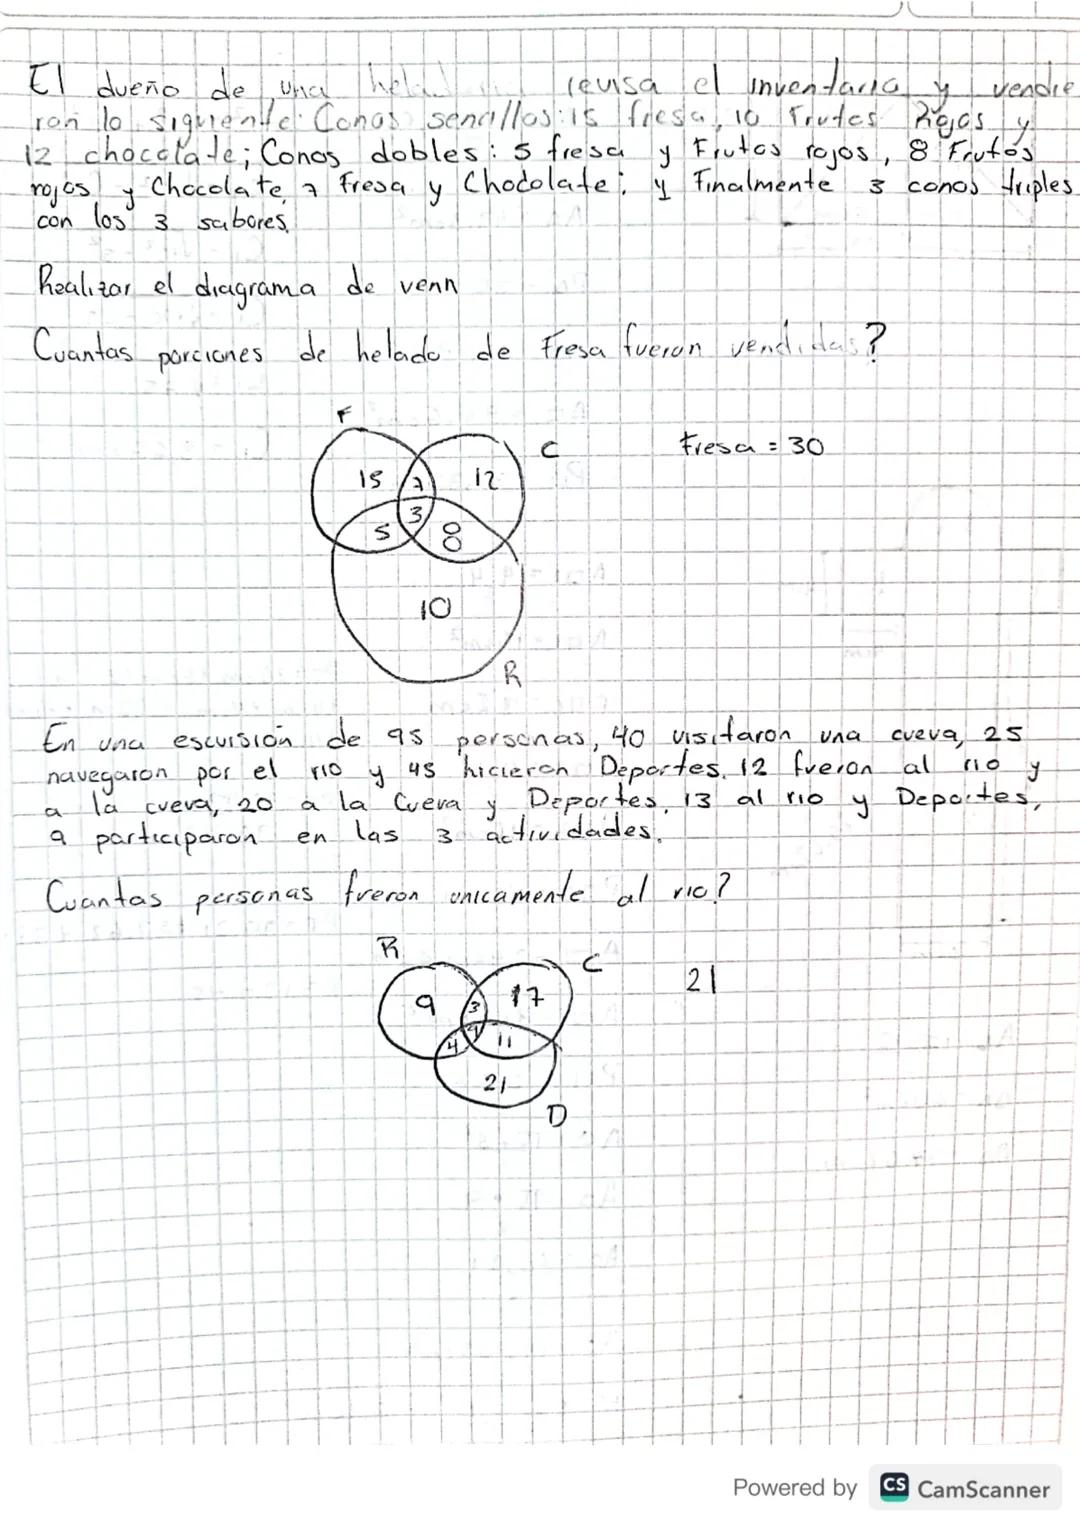 El dueño de una revisa el inventario y vendie
ron lo siguiente: Conos sencillos: 15 fresa, 10 Frutos Rojos y
12 chocolate; Conos dobles: 5 fresa y Frutos rojos, 8 Frutos
rojos y Chocolate, 7 Fresa y Chocolate; y Finalmente 3 conos triples
con los 3 sabores.
Realizar el diagrama de venn
Cuantas porciones de helado de Fresa fueron vendidas?
F
C
Fresa = 30
15 7 12
3
5 8
10
R
En una escursión de 95 personas, 40 visitaron una cueva, 25
navegaron por el rio y 45 hicieron Deportes. 12 fueron al rio y
a la cueva, 20 a la Cueva y Deportes, 13 al rio y Deportes,
9 participaron en las 3 actividades.
Cuantas personas fueron unicamente al rio?
R
C
21
9 3 17
9
4 11
21
D
Powered by CS CamScanner